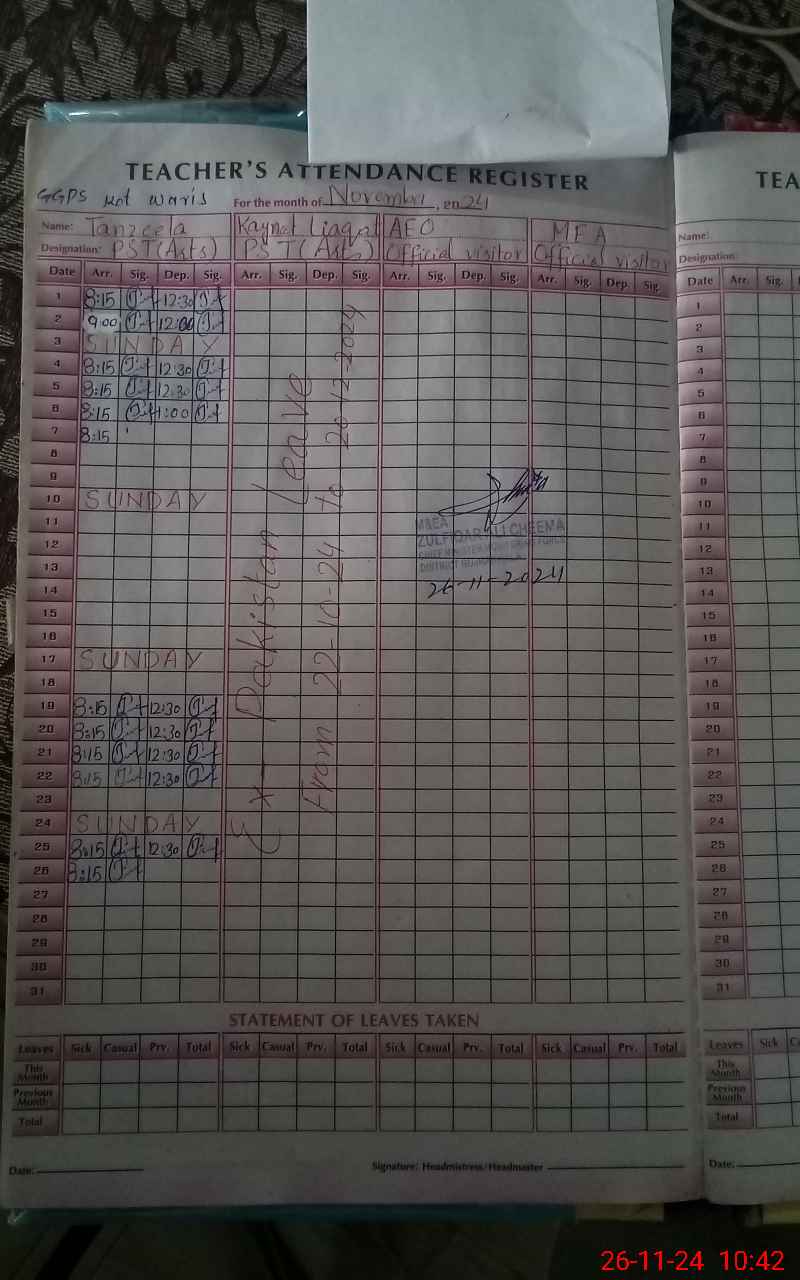 TEACHER'S ATTENDANCE REGISTER
TEA
GGPS kot waris For the month of November, 2024
Name: Tanzeela Kaynat Liaqat AEO MEA
Name:
Designation: PST(Arts) PST(Arts) Official visitor Official visitor
Designation:
Date Arr. Sig. Dep. Sig. Arr. Sig. Dep. Sig. Arr. Sig. Dep. Sig. Arr. Sig. Dep. Sig.
Date Arr. Sig.
1 8:15 12:30
2 9:00 12:00
3 SUNDAY
4 8:15 12:30
5 8:15 12:30
6 8:15 1:00
7 8:15
8
9
10 SUNDAY
11
12
13
14
15
16
17 SUNDAY
18
19 8:15 12:30
20 8:15 12:30
21 8:15 12:30
22 8:15 12:30
23
24 SUNDAY
25 8:15 12:30
26 8:15
27
28
29
30
31
Ex-Pakistan Leave
From 22-10-24 to 20-12-2024
M&EA
ZULFIQAR ALI CHEEMA
26-11-2024
1
2
3
4
5
6
7
8
9
10
11
12
13
14
15
16
17
18
19
20
21
22
23
24
25
26
27
28
29
30
31
STATEMENT OF LEAVES TAKEN
Leaves Sick Casual Prv. Total Sick Casual Prv. Total Sick Casual Prv. Total Sick Casual Prv. Total
Leaves Sick
This Month
Previous Month
Total
This Month
Previous Month
Total
Date: Signature: Headmistress/Headmaster
Date:
26-11-24 10:42